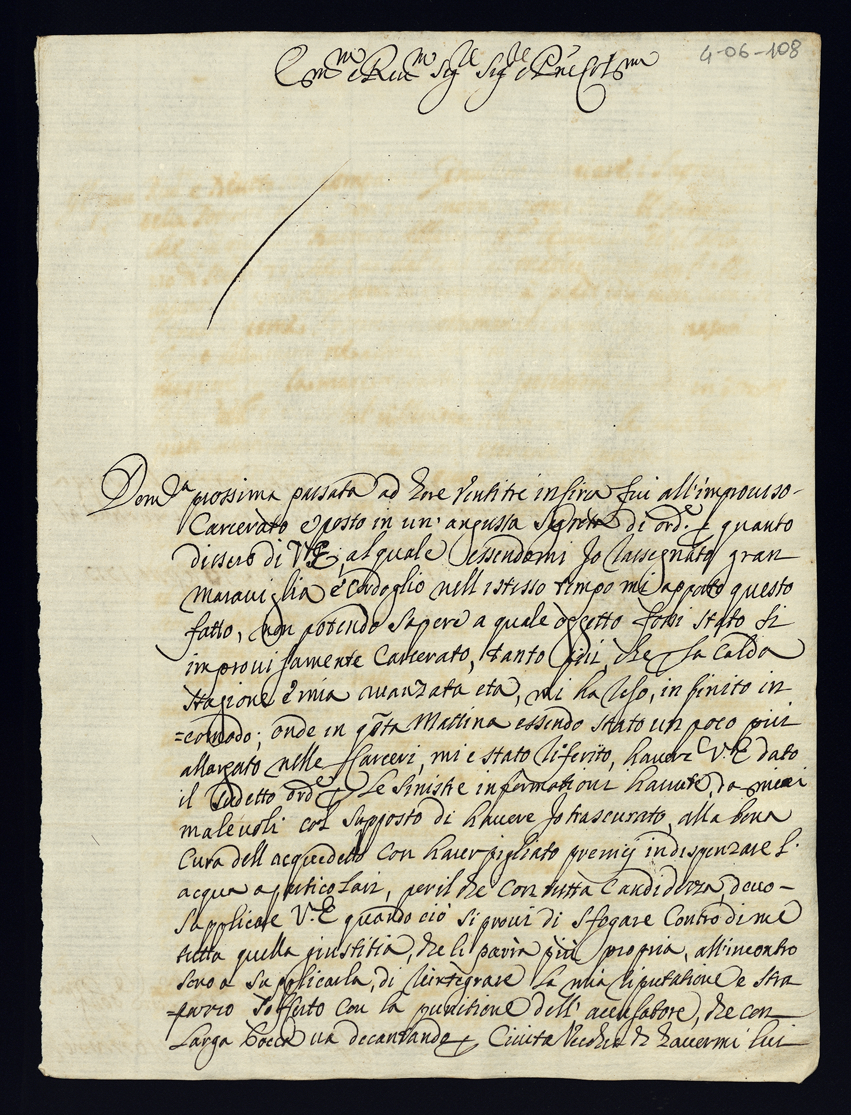 4-06-108
Em.mo e Rev.mo Sig.re Sig.re e P̃ne Col.mo
Dom.ca prossima passata ad hore Ventitre in circa fui all'improuiso
Carcerato e posto in un' angusta Segreta di ord.e p quanto
dissero di V.E., al quale essendomi Jo rassegnato gran
marauiglia e Cordoglio nell istesso tempo mi apportò questo
fatto, non potendo sapere a quale oggetto fossi stato si
improuisamente Carcerato, tanto più che la Calda
Stagione e mia auanzata età, mi ha reso, infinito in
=comodo; onde in q̃ta Mattina essendo stato un poco più
allargato nelle Carceri, mi è stato riferito, hauere V.E dato
il sudetto ord.e p le sinistre informationi hauute, da miei
maleuoli col supposto di hauere Jo trascurato, alla bona
Cura dell acquedotto con hauer pigliato premij in dispenzare l'
acqua a particolari, per il che con tutta Candidezza, deuo
Supplicare V.E quando ciò si proui di sfogare Contro di me
tutta quella giustitia, che li parrà più propria, all'incontro
sono a supplicarla, di reintegrare la mia riputatione e stra
=pazzo sofferto con la punitione dell' accusatore, che con
larga bocca ua decantando p Ciuita Vecchia di hauermi lui